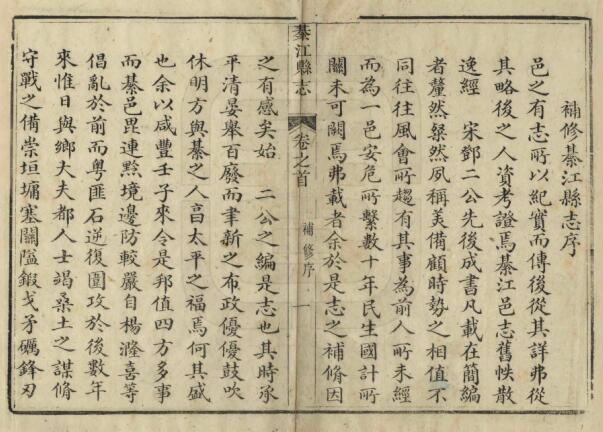 補修綦江縣志序
邑之有志所以紀實而傳後從其詳弗從
其略後之人資考證焉綦江邑志舊帙散
逸經　宋鄧二公先後成書凡載在簡編
者釐然粲然夙稱美備顧時勢之相值不
同往往風會所趨有其事為前人所未經
而為一邑安危所繫數十年民生國計所
關未可闕焉弗載者余於是志之補脩因
綦江縣志
卷之首
補修序
一
之有感矣始　二公之編是志也其時承
平清晏舉百廢而聿新之布政優優鼓吹
休明方與綦之人㐭太平之福焉何其盛
也余以咸豐壬子來令是邦值四方多事
而綦邑毘連黔境邊防較嚴自楊漋喜等
倡亂於前而粵匪石逆復圍攻於後數年
來惟日與鄉大夫都人士竭桑土之謀脩
守戰之備崇垣墉塞關隘鍜戈矛礪鋒刃